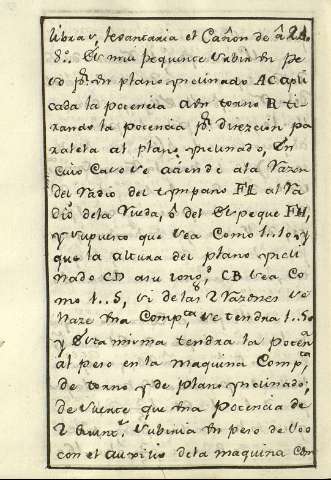 libras, levantaria el Cañon de â 24.
8º. Es mui frequente subir un pe
so pr. un plano ynclinado AC apli
cada la potencia a un torno R ti
rando la potencia pr. direzcion pa
ralela al plano ynclinado, En
cuio caso se atiende a la razon
del radio del tympano FL al ra
dio de la rueda, ô del Espeque FH,
y supuesto que sea como 1..10, y
que la altura del plano yncli
nado CD a su long.d CB sea co
mo 1..5, si de las 2 razones se
haze una Comp.ta se tendra 1..50
y Esta misma tendra la poten.a
al peso en la maquina Comp.ta
de torno y de plano ynclinado,
de suerte que una Potencia de
2 subiria un peso de 100
con el auxilio de la maquina com